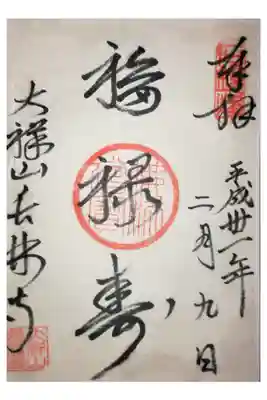 奉拝
平成卅一年
二月九日
福禄寿
大祥山長林寺